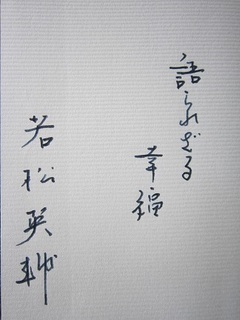 語られざる
幸福
若松英輔